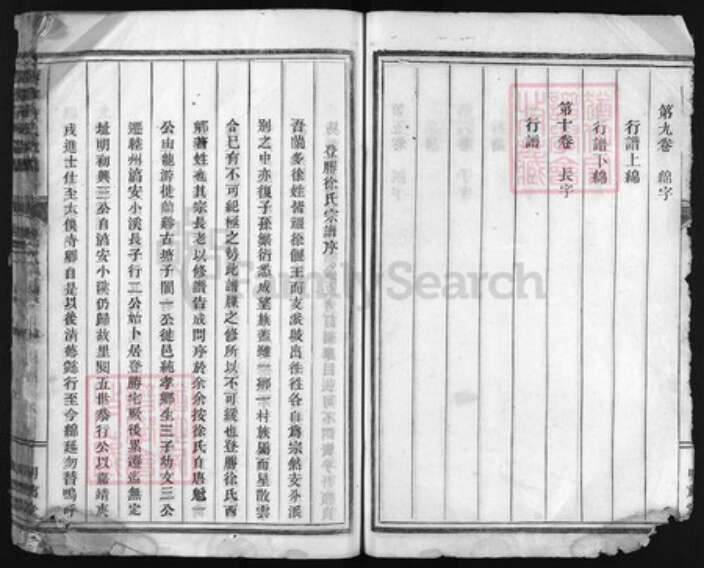 第九卷 綿字
行譜上綿
行譜下綿
第十卷 長字
行譜
登勝徐氏宗譜序
吾蘭多徐姓皆祖徐偃王而支派各自為宗然
別之中亦復子孫繁衍悉成望族蓋雖一鄉一村族屬而星散雲
合已有不可紀極之勢此譜牒之修所以不可緩也登勝徐氏西
鄉著姓也其宗長老以修譜告成問序於余余按徐氏自唐
公由龍游徙古塘子閣一公徙邑純孝鄉生三子幼文三公
遷睦州淯安小溪長子行二公始卜居登勝宅厥後異遷無定
址明初興三公自淯安小溪仍歸故里閱五世恭行公以嘉靖庚
戌進士仕至太僕寺卿自是以後清德懿行至今綿延勿替嗚呼
FamilySearch